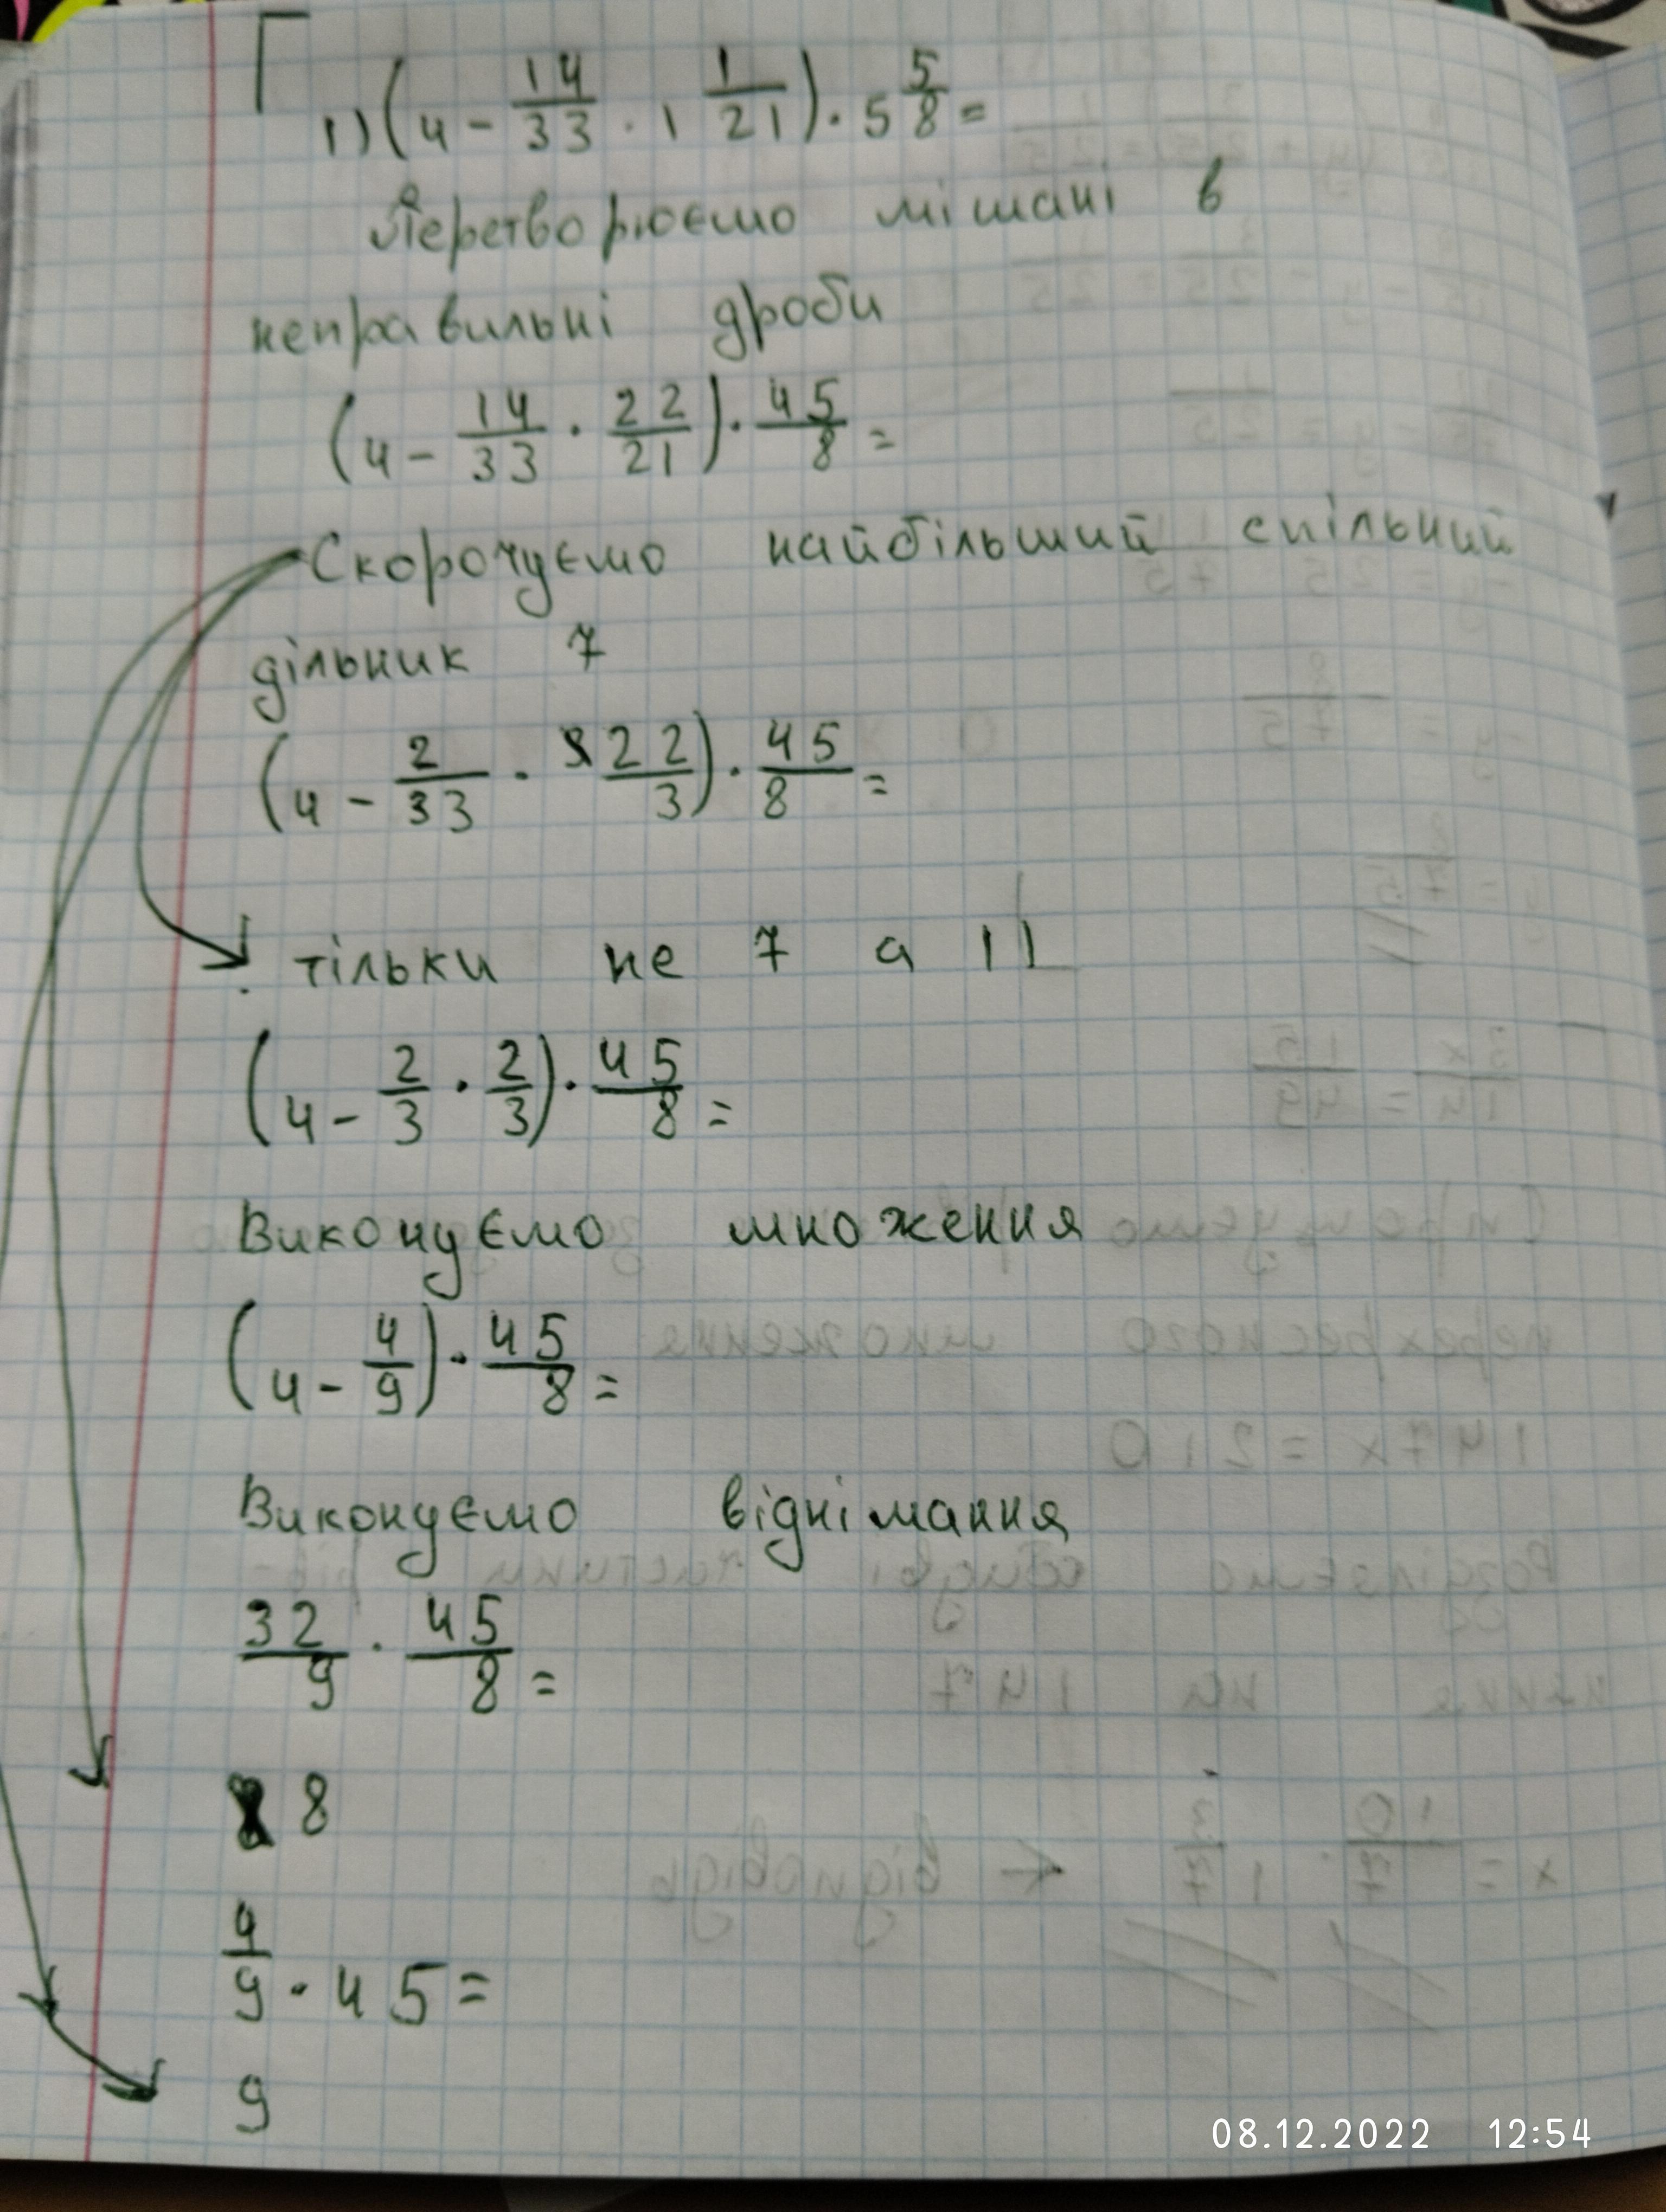 1) (4 - 14/33 · 1 1/21) · 5 5/8 =
Перетворюємо мішані в
неправильні дроби
(4 - 14/33 · 22/21) · 45/8 =
Скорочуємо найбільший спільний
дільник 7
(4 - 2/33 · 22/3) · 45/8 =
тільки не 7 а 11
(4 - 2/3 · 2/3) · 45/8 =
Виконуємо множення
(4 - 4/9) · 45/8 =
Виконуємо віднімання
32/9 · 45/8 =
8
4/9 · 45 =
9
08.12.2022 12:54